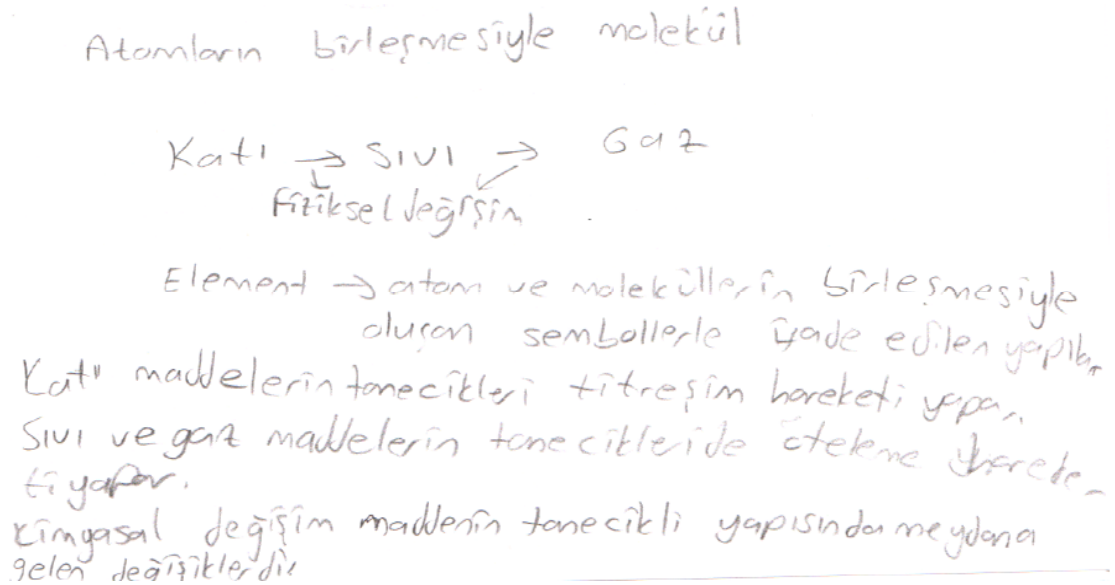 Atomların birleşmesiyle molekül
Katı → Sıvı → Gaz
fiziksel değişim
Element → atom ve moleküllerin birleşmesiyle
oluşan sembollerle ifade edilen yapılar
Katı maddelerin tanecikleri titreşim hareketi yapar.
Sıvı ve gaz maddelerin tanecikleride öteleme hareke-
ti yapar.
Kimyasal değişim maddenin tanecikli yapısında meydana
gelen değişiklerdir